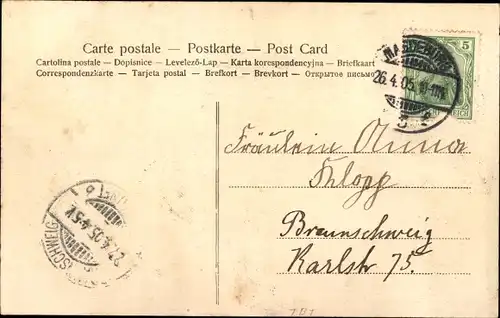 Carte postale — Postkarte — Post Card
Cartolina postale — Dopisnice — Levelező-Lap — Karta korespondencyjna — Briefkaart
Correspondenzkarte — Tarjeta postal — Brefkort — Brevkort — Открытое письмо
5
MAGDEBURG
26.4.05.
REICH
Fräulein Anna
Klopp
Braunschweig
Karlstr 75.
27.4.05.4-5V